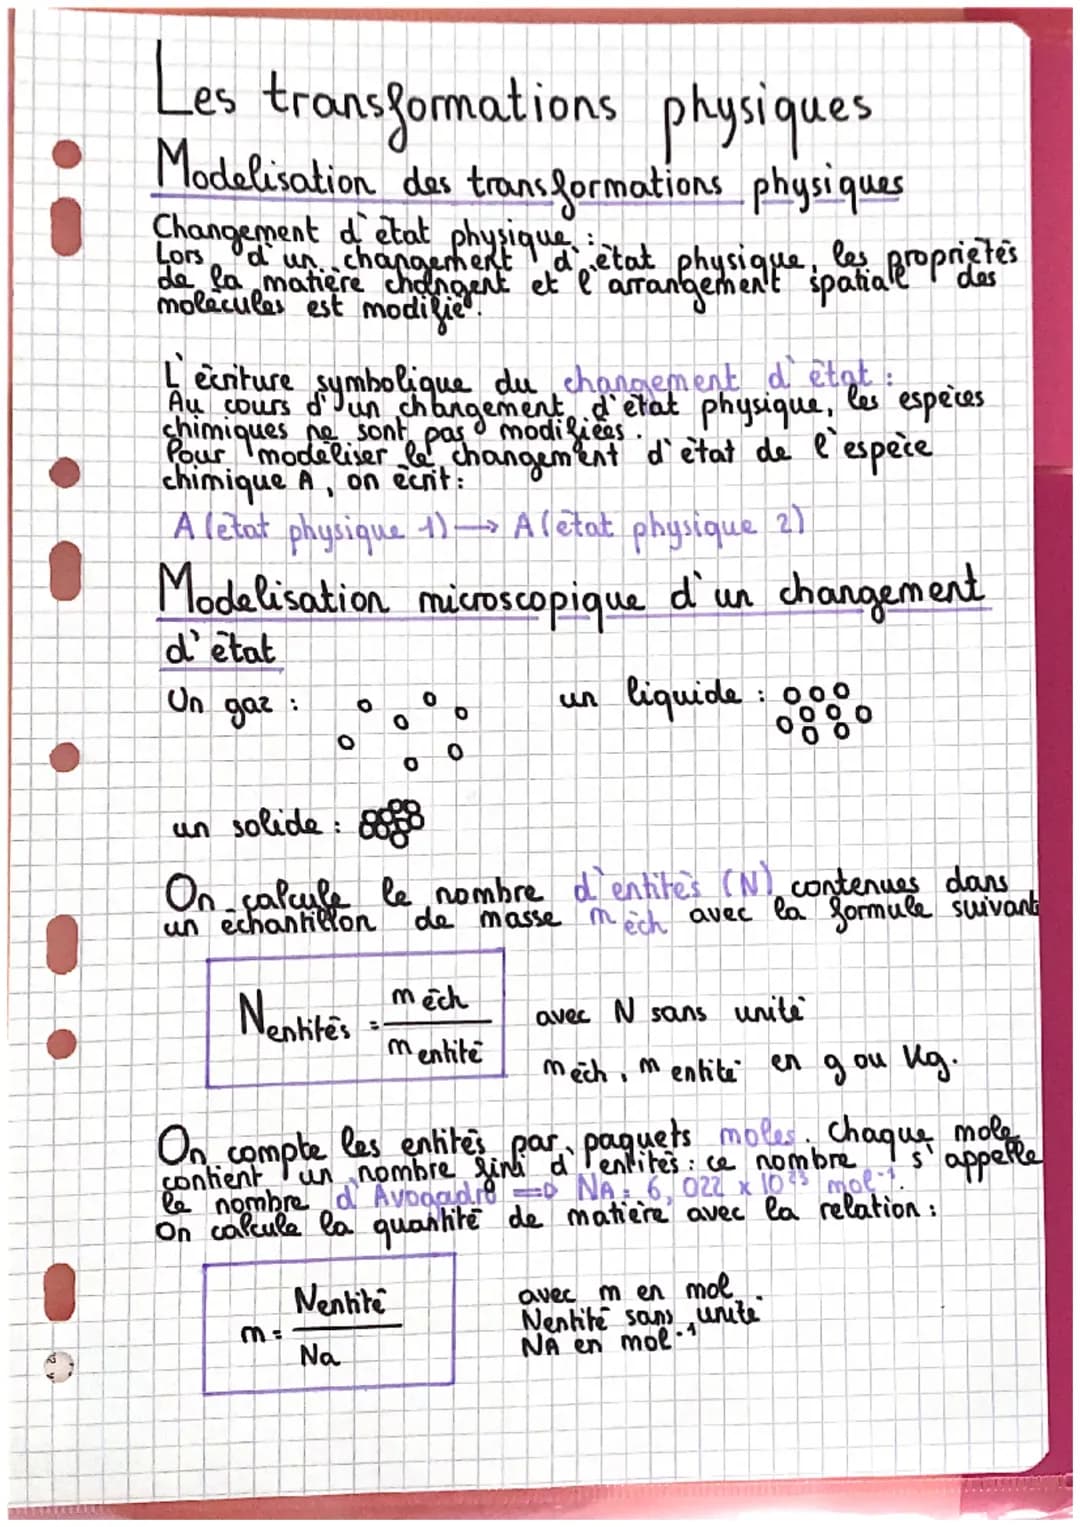 Les transformations physiques
Modelisation des transformations physiques
Changement d'état physique :
Lors d'un changement d'état physique, les propriétés
de la matière changent et l'arrangement spatiale des
molécules est modifié.
L'écriture symbolique du changement d'état :
Au cours d'un changement d'état physique, les espèces
chimiques ne sont pas modifiées.
Pour modéliser le changement d'état de l'espèce
chimique A, on écrit :
A (état physique 1) → A (état physique 2)
Modelisation microscopique d'un changement
d'état
Un gaz :
un liquide :
un solide :
On calcule le nombre d'entités (N) contenues dans
un échantillon de masse m éch avec la formule suivant
Nentités = m éch / m entité
avec N sans unité
m éch, m entité en g ou Kg.
On compte les entités par paquets moles. Chaque mole
contient un nombre fini d'entités : ce nombre s'appelle
le nombre d'Avogadro => NA = 6,022 x 10²³ mol⁻¹.
On calcule la quantité de matière avec la relation :
m = Nentité / Na
avec m en mol
Nentité sans unité.
NA en mol⁻¹